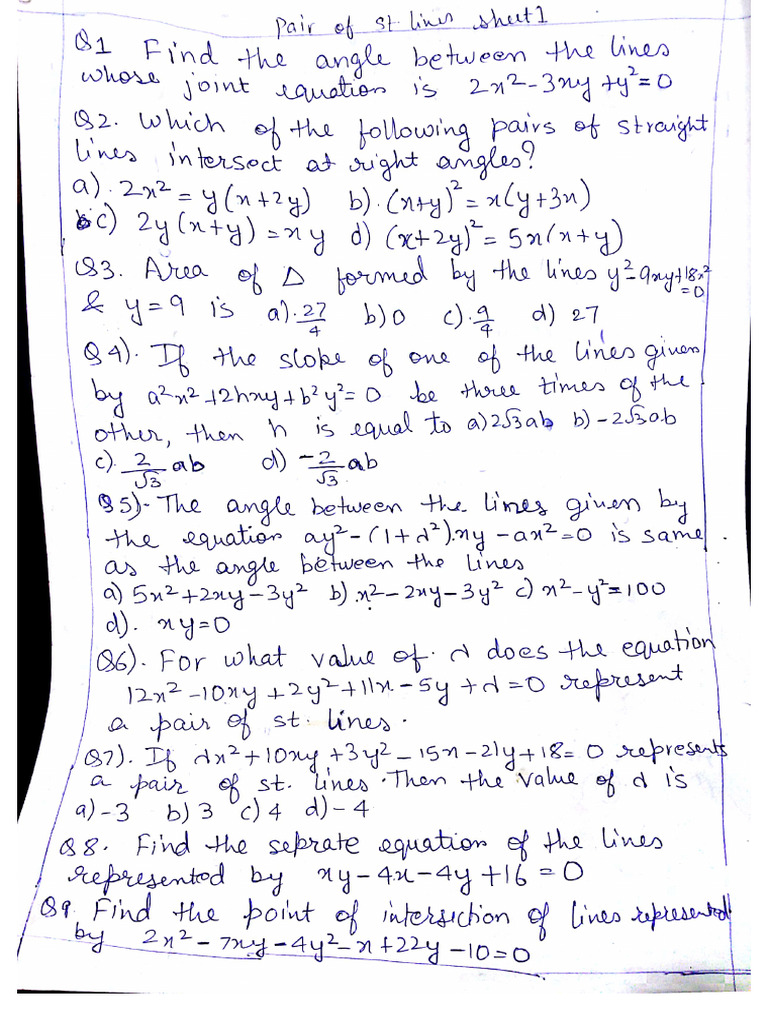 Pair of st lines sheet 1
Q1 Find the angle between the lines
whose joint equation is 2x²-3xy+y²=0
Q2. Which of the following pairs of straight
lines intersect at right angles?
a). 2x² = y(x+2y) b). (x+y)² = x(y+3x)
c) 2y(x+y) = xy d) (x+2y)² = 5x(x+y)
Q3. Area of Δ formed by the lines y²-9xy+18x²=0
& y=9 is a). 27/4 b) 0 c). 9/4 d) 27
Q4). If the slope of one of the lines given
by a²x²+2hxy+b²y²=0 be three times of the
other, then h is equal to a) 2√3ab b) -2√3ab
c). 2/√3 ab d) -2/√3 ab
Q5)- The angle between the lines given by
the equation ay²-(1+λ²).xy-ax²=0 is same
as the angle between the lines
a) 5x²+2xy-3y² b). x²-2xy-3y² c) x²-y²=100
d). xy=0
Q6). For what value of λ does the equation
12x²-10xy+2y²+11x-5y+λ=0 represent
a pair of st. lines.
Q7). If λx²+10xy+3y²-15x-21y+18=0 represents
a pair of st. lines. Then the value of λ is
a) -3 b) 3 c) 4 d) -4
Q8. Find the seprate equation of the lines
represented by xy-4x-4y+16=0
Q9. Find the point of intersiction of lines represented
by 2x²-7xy-4y²-x+22y-10=0